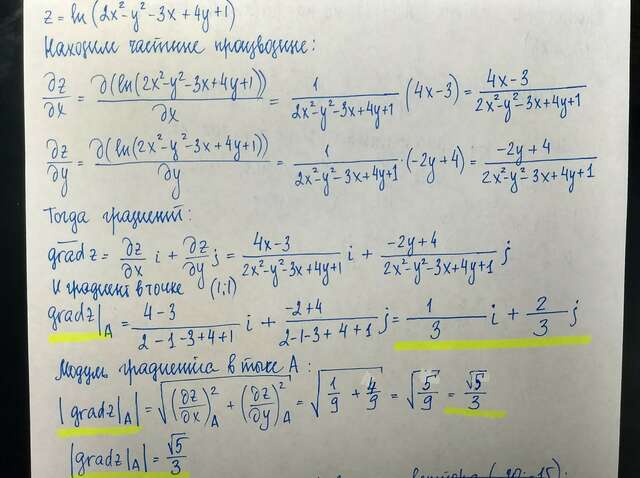 z = ln (2x²-y²-3x+4y+1)
Находим частные производные:
∂z/∂x = ∂(ln(2x²-y²-3x+4y+1))/∂x = 1/(2x²-y²-3x+4y+1) (4x-3) = (4x-3)/(2x²-y²-3x+4y+1)
∂z/∂y = ∂(ln(2x²-y²-3x+4y+1))/∂y = 1/(2x²-y²-3x+4y+1) · (-2y+4) = (-2y+4)/(2x²-y²-3x+4y+1)
Тогда градиент:
grad z = ∂z/∂x i + ∂z/∂y j = (4x-3)/(2x²-y²-3x+4y+1) i + (-2y+4)/(2x²-y²-3x+4y+1) j
И градиент в точке (1;1)
gradz|A = (4-3)/(2-1-3+4+1) i + (-2+4)/(2-1-3+4+1) j = 1/3 i + 2/3 j
Модуль градиента в точке A:
|gradz|A| = √((∂z/∂x)²A + (∂z/∂y)²A) = √(1/9 + 4/9) = √(5/9) = √5/3
|gradz|A| = √5/3